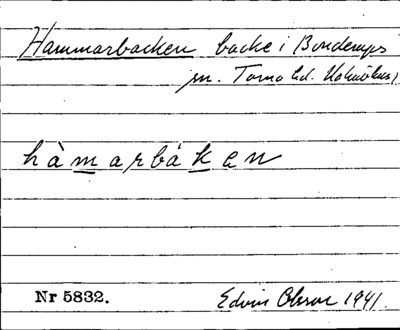 Hammarbacken backe i Bonderups
sn. Torna hd. Malmöhus l.
hàmarbáken
Nr 5832. Edvin Olsson 1941.